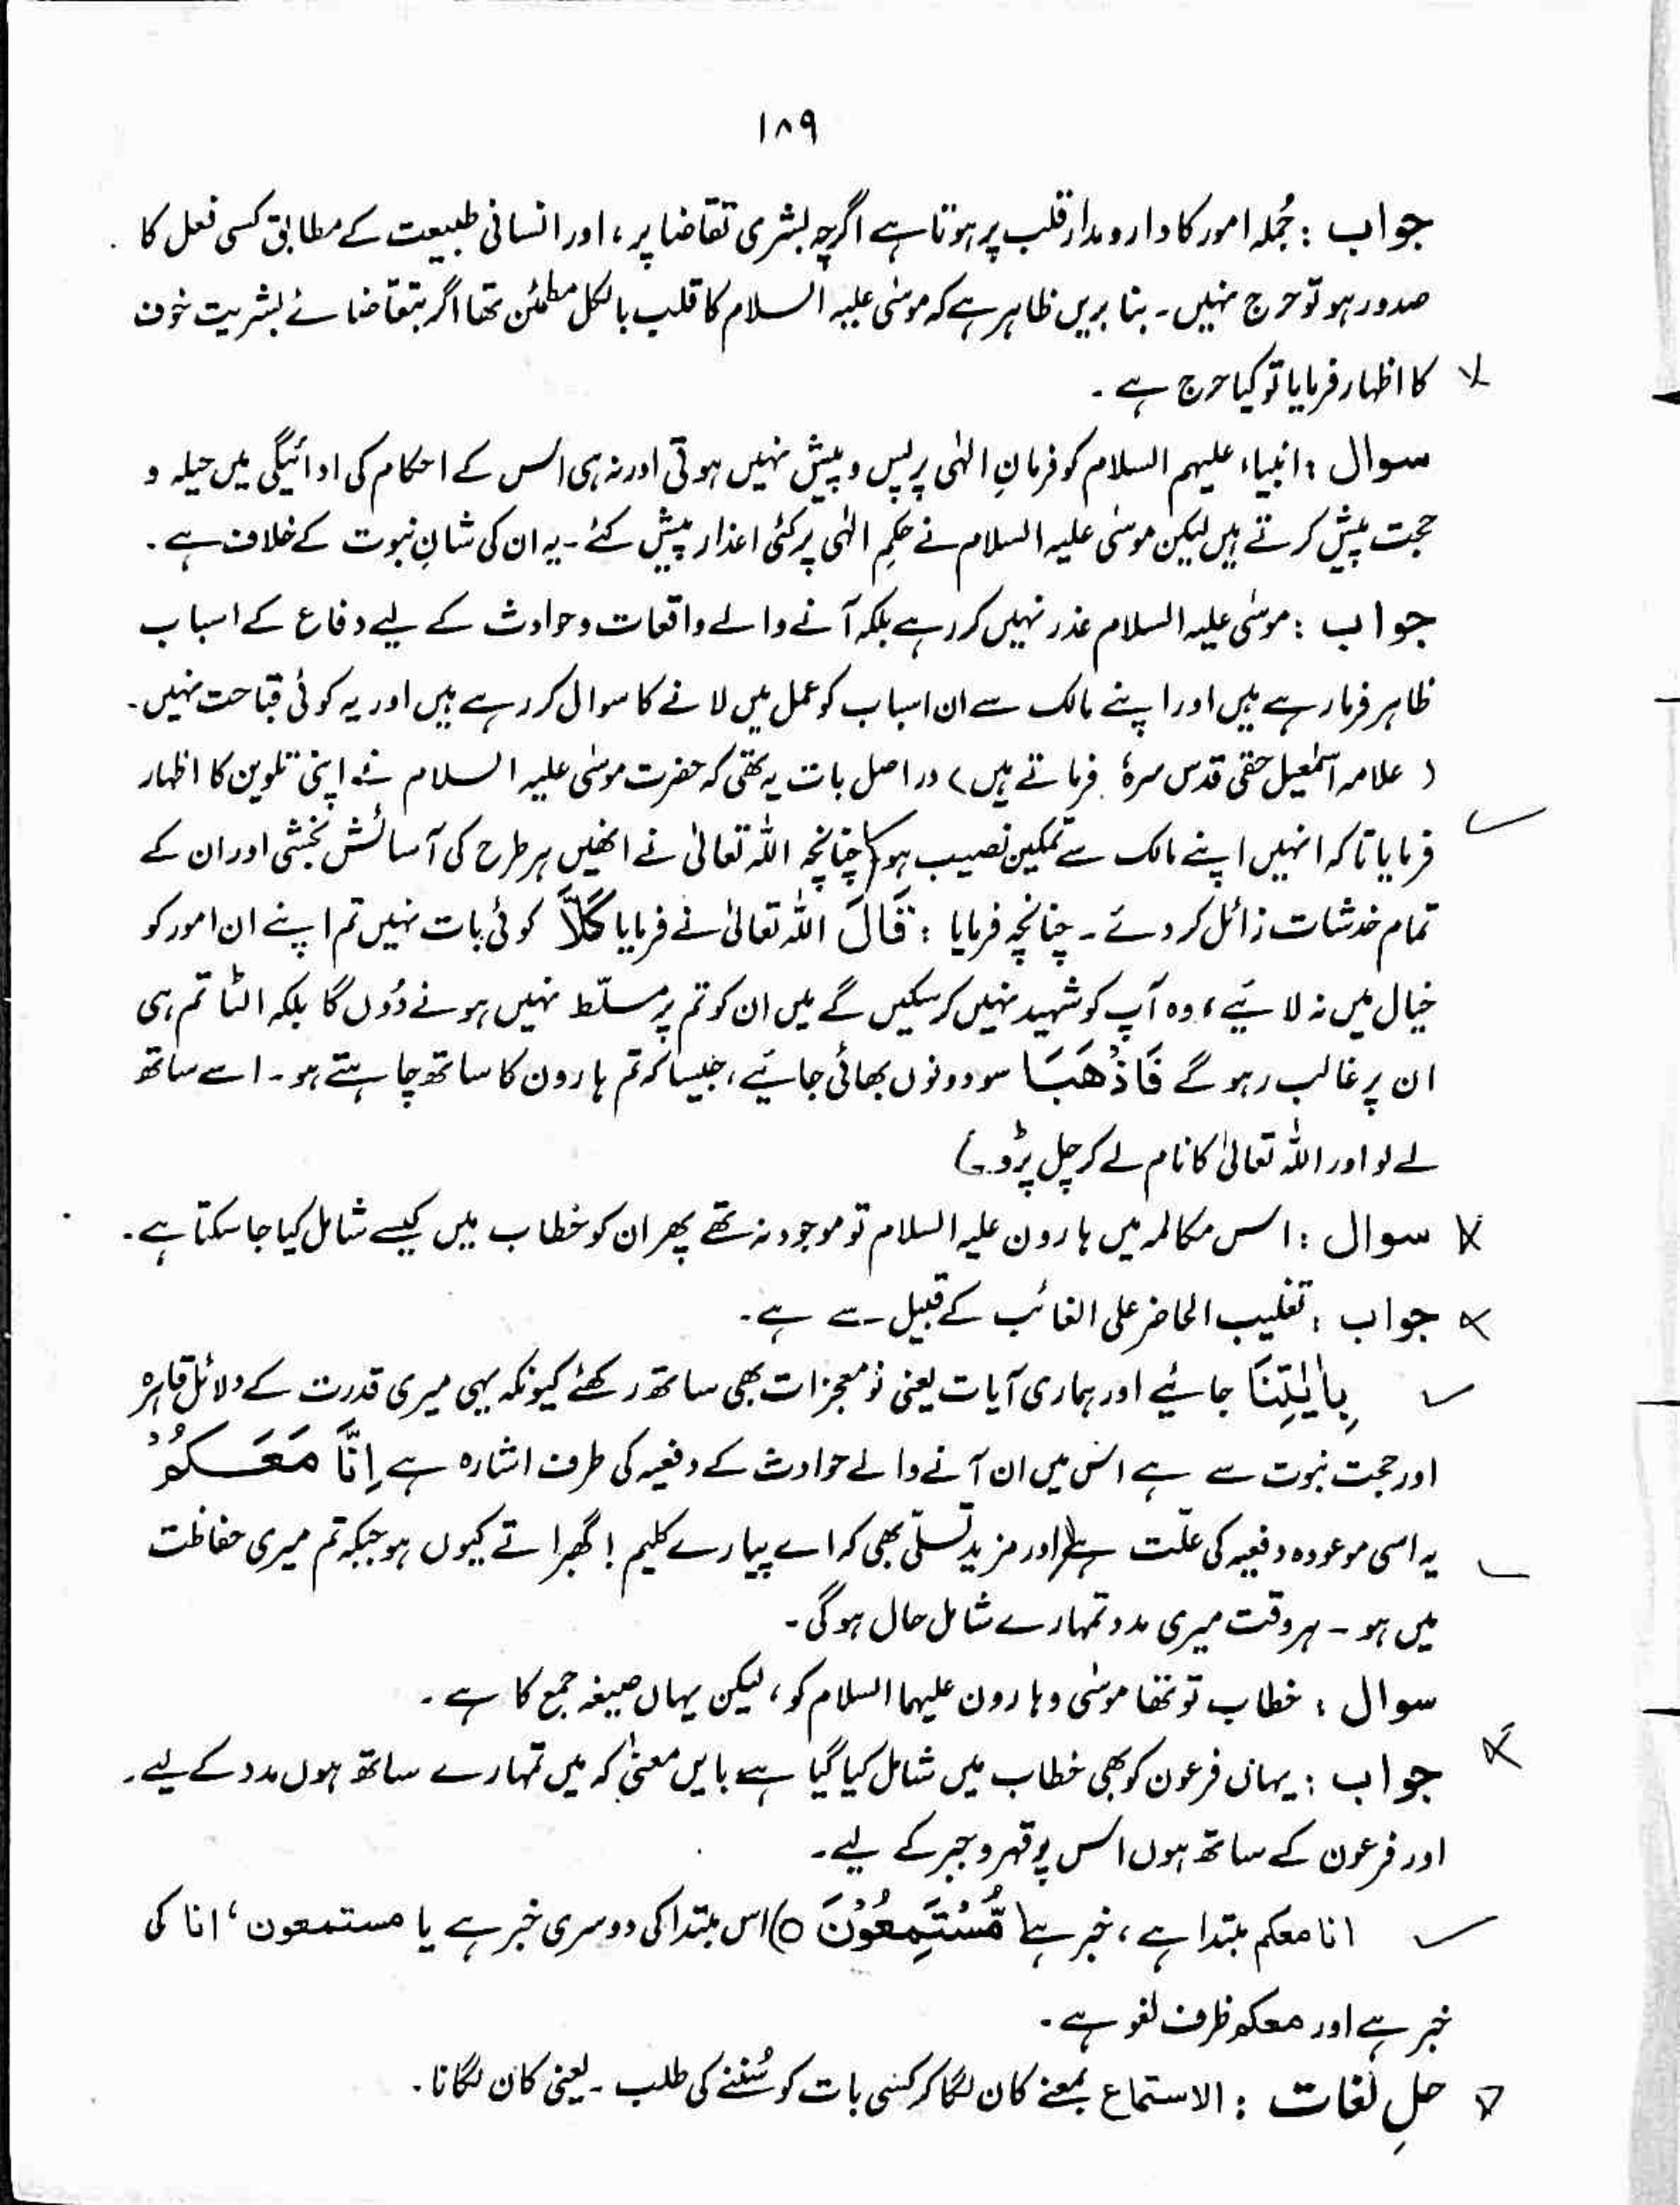 ۱۸۹
جواب : جُملہ امور کا دارومدار قلب پر ہوتا ہے اگرچہ بشری تقاضا پر ، اور انسانی طبیعت کے مطابق کسی فعل کا
صدور ہو تو حرج نہیں ۔ بنا بریں ظاہر ہے کہ موسٰی علیہ السلام کا قلب بالکل مطمئن تھا اگر بتقاضائے بشریت خوف
کا اظہار فرمایا تو کیا حرج ہے ۔
سوال : انبیاء علیہم السلام کو فرمانِ الہٰی پر پس و پیش نہیں ہوتی اور نہ ہی اس کے احکام کی ادائیگی میں حیلہ و
حجت پیش کرتے ہیں لیکن موسٰی علیہ السلام نے حکمِ الہٰی پر کئی اعذار پیش کئے ۔ یہ ان کی شانِ نبوت کے خلاف ہے ۔
جواب : موسٰی علیہ السلام عذر نہیں کر رہے بلکہ آنے والے واقعات و حوادث کے لیے دفاع کے اسباب
ظاہر فرما رہے ہیں اور اپنے مالک سے ان اسباب کو عمل میں لانے کا سوال کر رہے ہیں اور یہ کوئی قباحت نہیں ۔
( علامہ اسمٰعیل حقی قدس سرہٗ فرماتے ہیں ) در اصل بات یہ تھی کہ حضرت موسٰی علیہ السلام نے اپنی تلوین کا اظہار
فرمایا تاکہ انہیں اپنے مالک سے تمکین نصیب ہو چنانچہ اللہ تعالیٰ نے انھیں ہر طرح کی آسائش بخشی اور ان کے
تمام خدشات زائل کر دئے ۔ چنانچہ فرمایا : قَالَ اللہ تعالیٰ نے فرمایا كَلَّا کوئی بات نہیں تم اپنے ان امور کو
خیال میں نہ لائیے ، وہ آپ کو شہید نہیں کر سکیں گے میں ان کو تم پر مسلّط نہیں ہونے دُوں گا بلکہ الٹا تم ہی
ان پر غالب رہو گے فَاذْهَبَا سو دونوں بھائی جائیے ، جیسا کہ تم ہارون کا ساتھ چاہتے ہو ۔ اسے ساتھ
لے لو اور اللہ تعالیٰ کا نام لے کر چل پڑو ۔
سوال : اس مکالمہ میں ہارون علیہ السلام تو موجود نہ تھے پھر ان کو خطاب میں کیسے شامل کیا جا سکتا ہے ۔
جواب : تغلیب الحاضر علی الغائب کے قبیل سے ہے ۔
بِاٰيٰتِنَا جائیے اور ہماری آیات یعنی نو معجزات بھی ساتھ رکھئے کیونکہ یہی میری قدرت کے دلائل قاہرہ
اور حجت نبوت سے ہے اس میں ان آنے والے حوادث کے دفعیہ کی طرف اشارہ ہے اِنَّا مَعَكُمْ
یہ اسی موعودہ دفعیہ کی علّت ہے اور مزید تسلّی بھی کہ اے پیارے کلیم ! گھبراتے کیوں ہو جبکہ تم میری حفاظت
میں ہو ۔ ہر وقت میری مدد تمہارے شامل حال ہو گی ۔
سوال : خطاب تو تھا موسٰی و ہارون علیہما السلام کو ، لیکن یہاں صیغہ جمع کا ہے ۔
جواب : یہاں فرعون کو بھی خطاب میں شامل کیا گیا ہے بایں معنیٰ کہ میں تمہارے ساتھ ہوں مدد کے لیے ۔
اور فرعون کے ساتھ ہوں اس پر قہر و جبر کے لیے ۔
انا معکم مبتدا ہے ، خبر ہے مُّسْتَمِعُوْنَ ○ اس مبتدا کی دوسری خبر ہے یا مستمعون ، انا کی
خبر ہے اور معکم ظرف لغو ہے ۔
حلِ لغات : الاستماع بمعنے کان لگا کر کسی بات کو سُننے کی طلب ۔ یعنی کان لگانا ۔